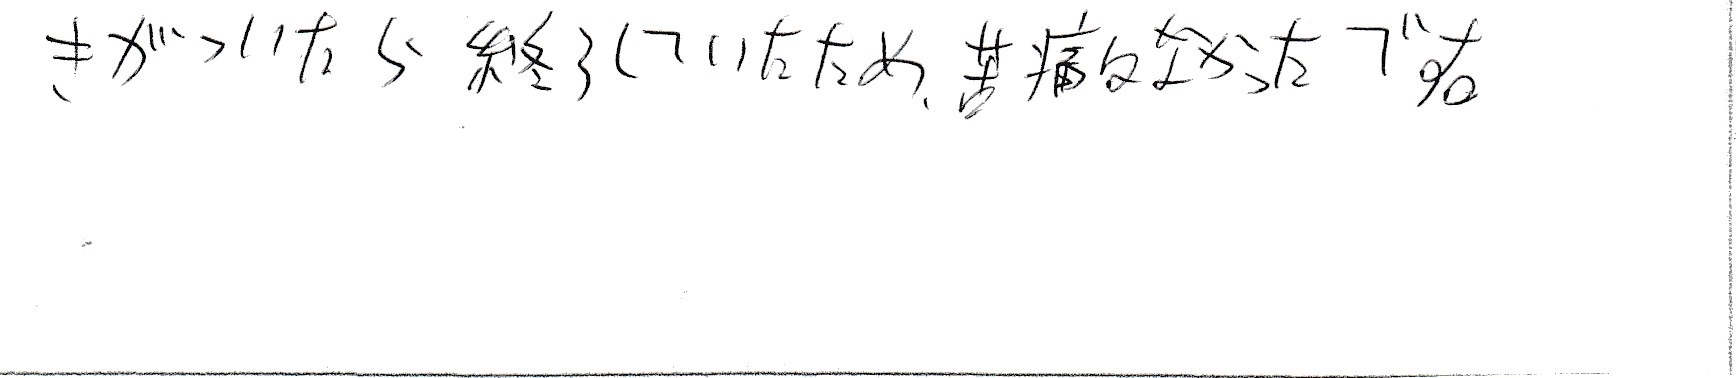 きがついたら終了していたため、苦痛はなかったです。